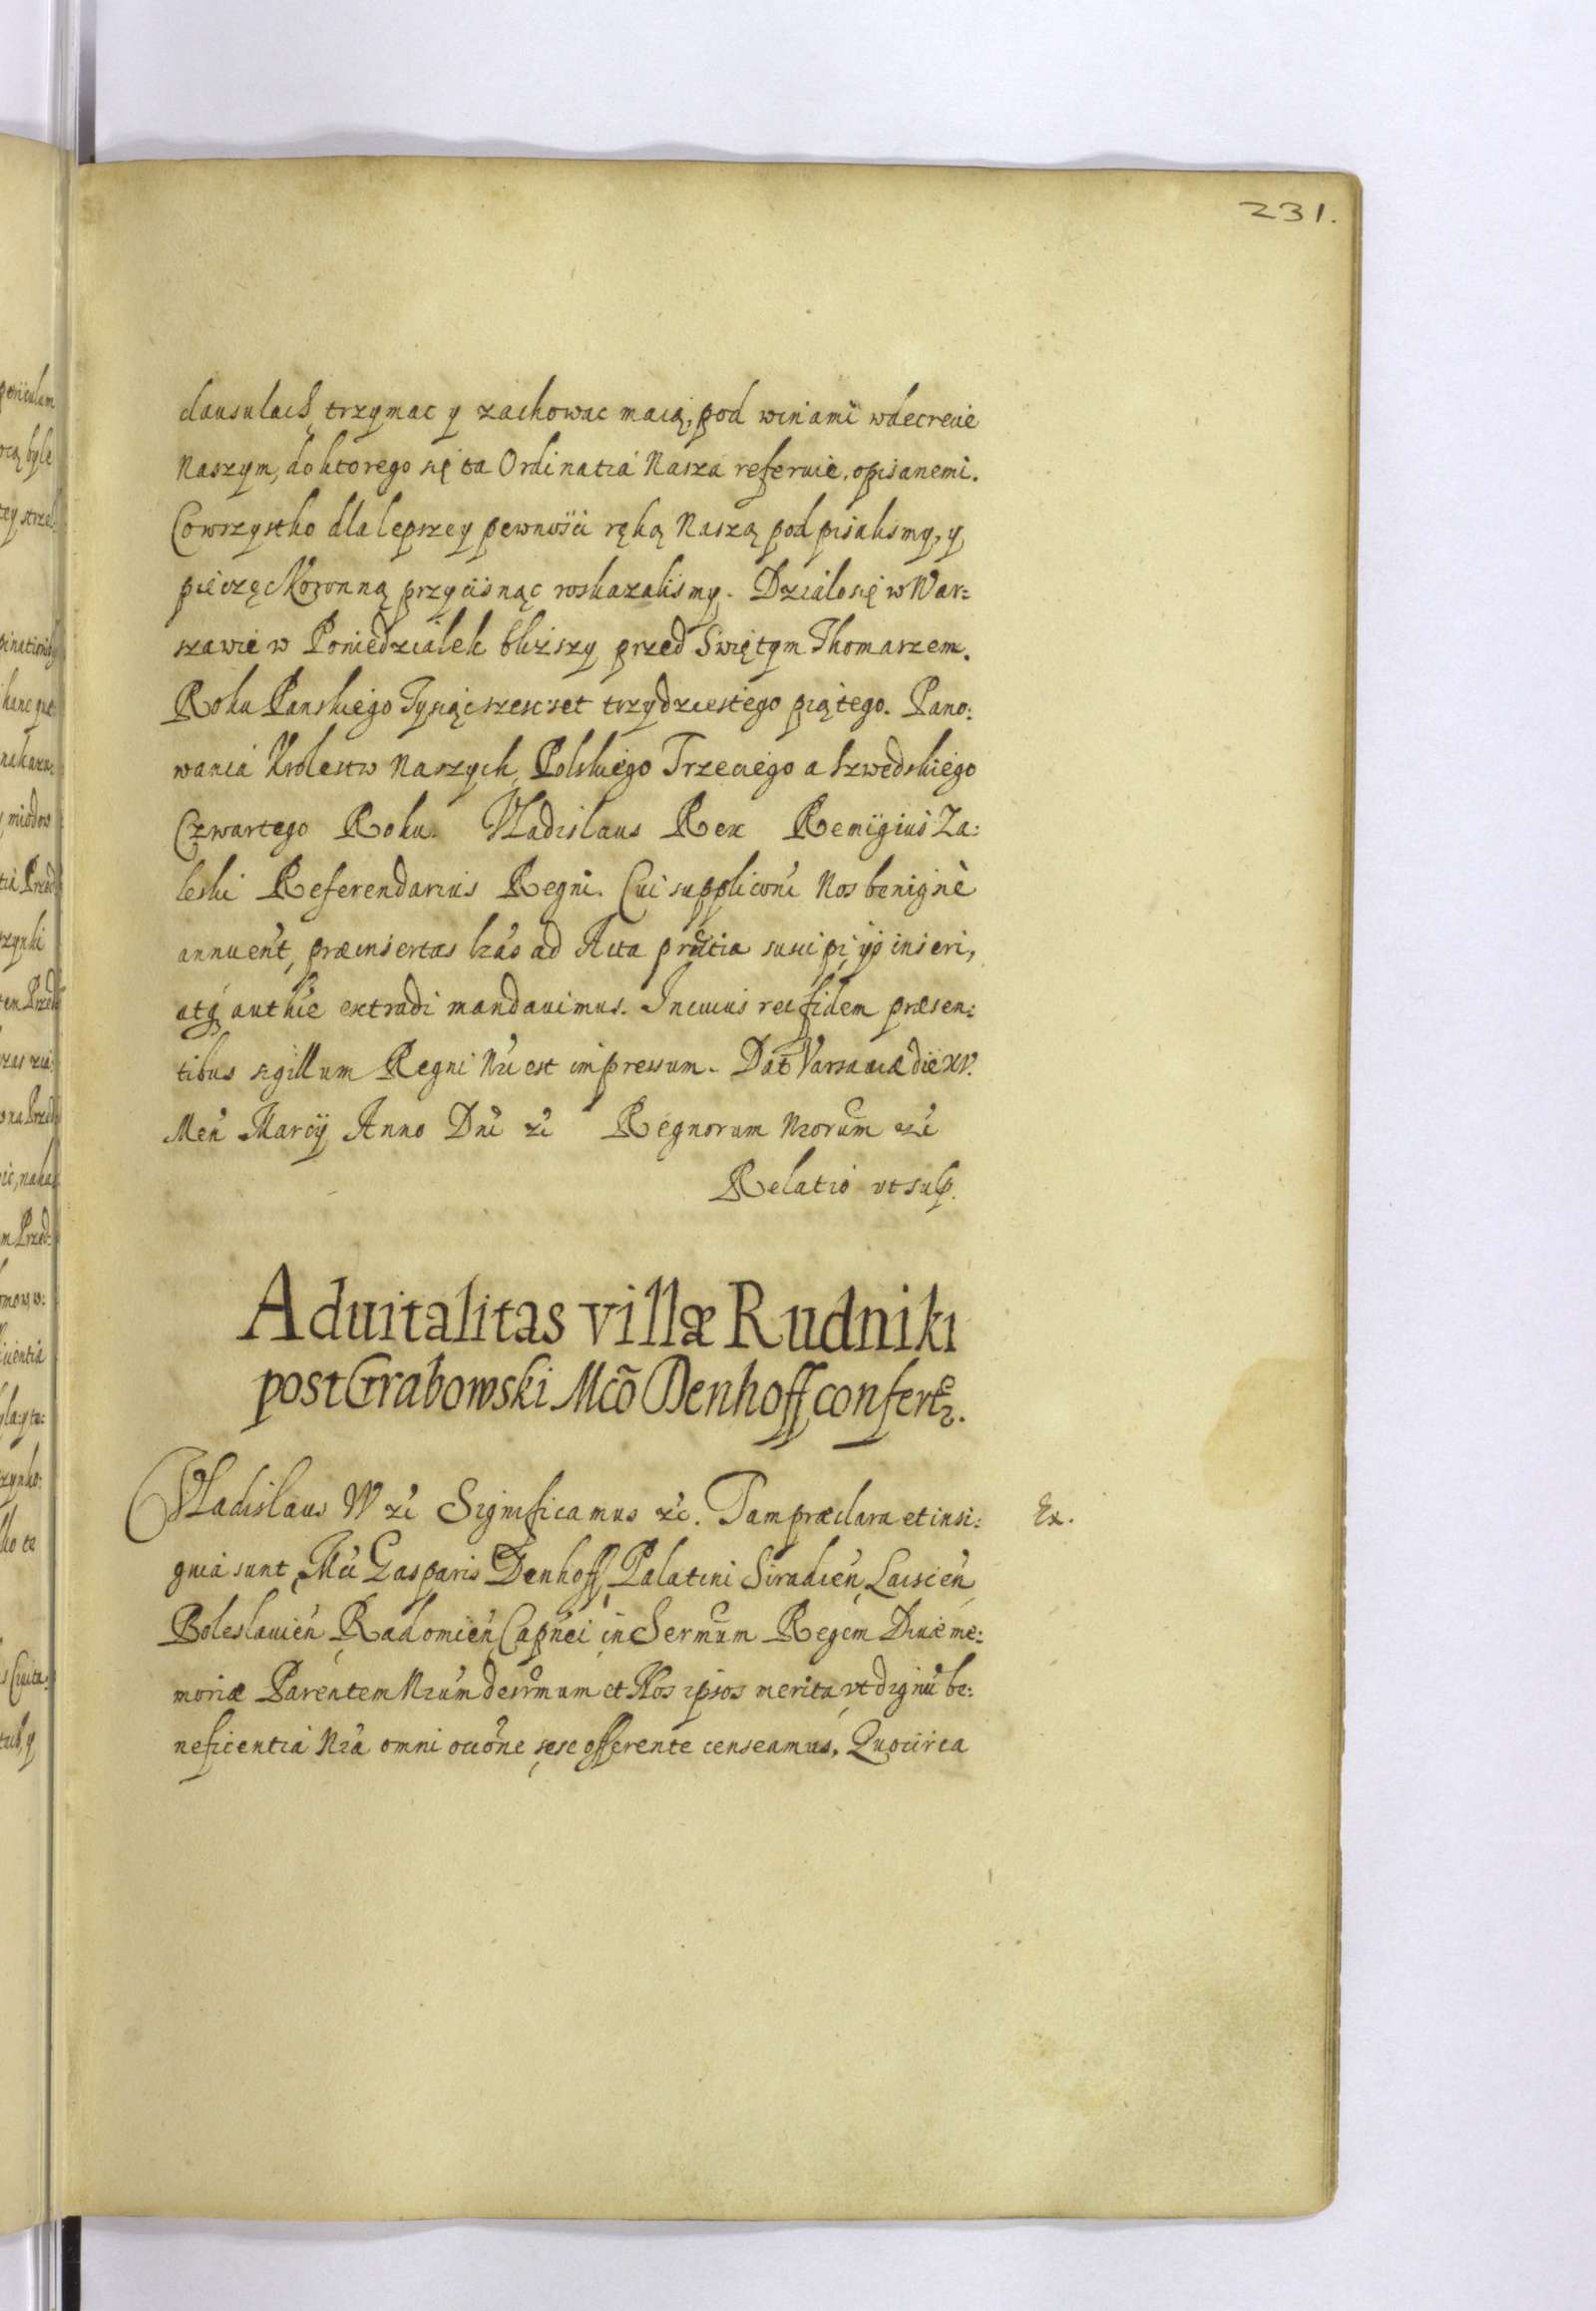 231.
clausulach, trzymac y zachowac maią, pod winami wdecrecie
Naszym, doktorego się ta Ordinatia Nasza referuie, opisanemi.
Cowszystko dla lepszey pewności ręką Naszą podpisalismy, y
pieczęc Koronną przycisnąc roskazalismy. Dzialo się w War:
szawie w Poniedzialek bliższy przed Swiętym Thomaszem.
Roku Panskiego Tysiącszescset trzydziestego piątego. Pano:
wania Krolestw Naszych, Polskiego Trzeciego a Szwedskiego
Czwartego Roku. Vladislaus Rex Remigius Za:
leski Referendarius Regni. Cui suppliconi Nos benignè
annuent, præinsertas lras ad Acta prntia suscipi, ijs inseri,
atq authce extradi mandauimus. Incuius rei fidem præsen:
tibus sigillum Regni Nri est impressum. Dat Varsauiæ die XV.
Men Marcij Anno Dni zc Regnorum Nrorum zc
Relatio vt sup.
Aduitalitas villæ Rudniki
post Grabowski Mco Denhoff confertr.
Vladislaus IV zc Significamus zc. Tam præclara et insi:
Ex.
gnia sunt Mci Gasparis Denhoff, Palatini Siradien, Laiscen,
Boleslauien, Radomien, Capnei in Sermum Regem Diuæ me:
moriæ Parentem Nrum desrmum et Nos ipsos merita, vt dignu be:
neficentia Nra omni occone sese offerente censeamus. Quocirca